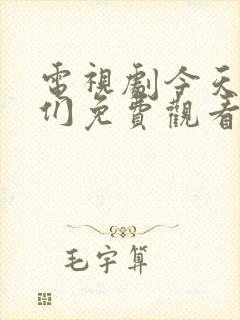 電視劇今天
们免費觀看
毛宇算